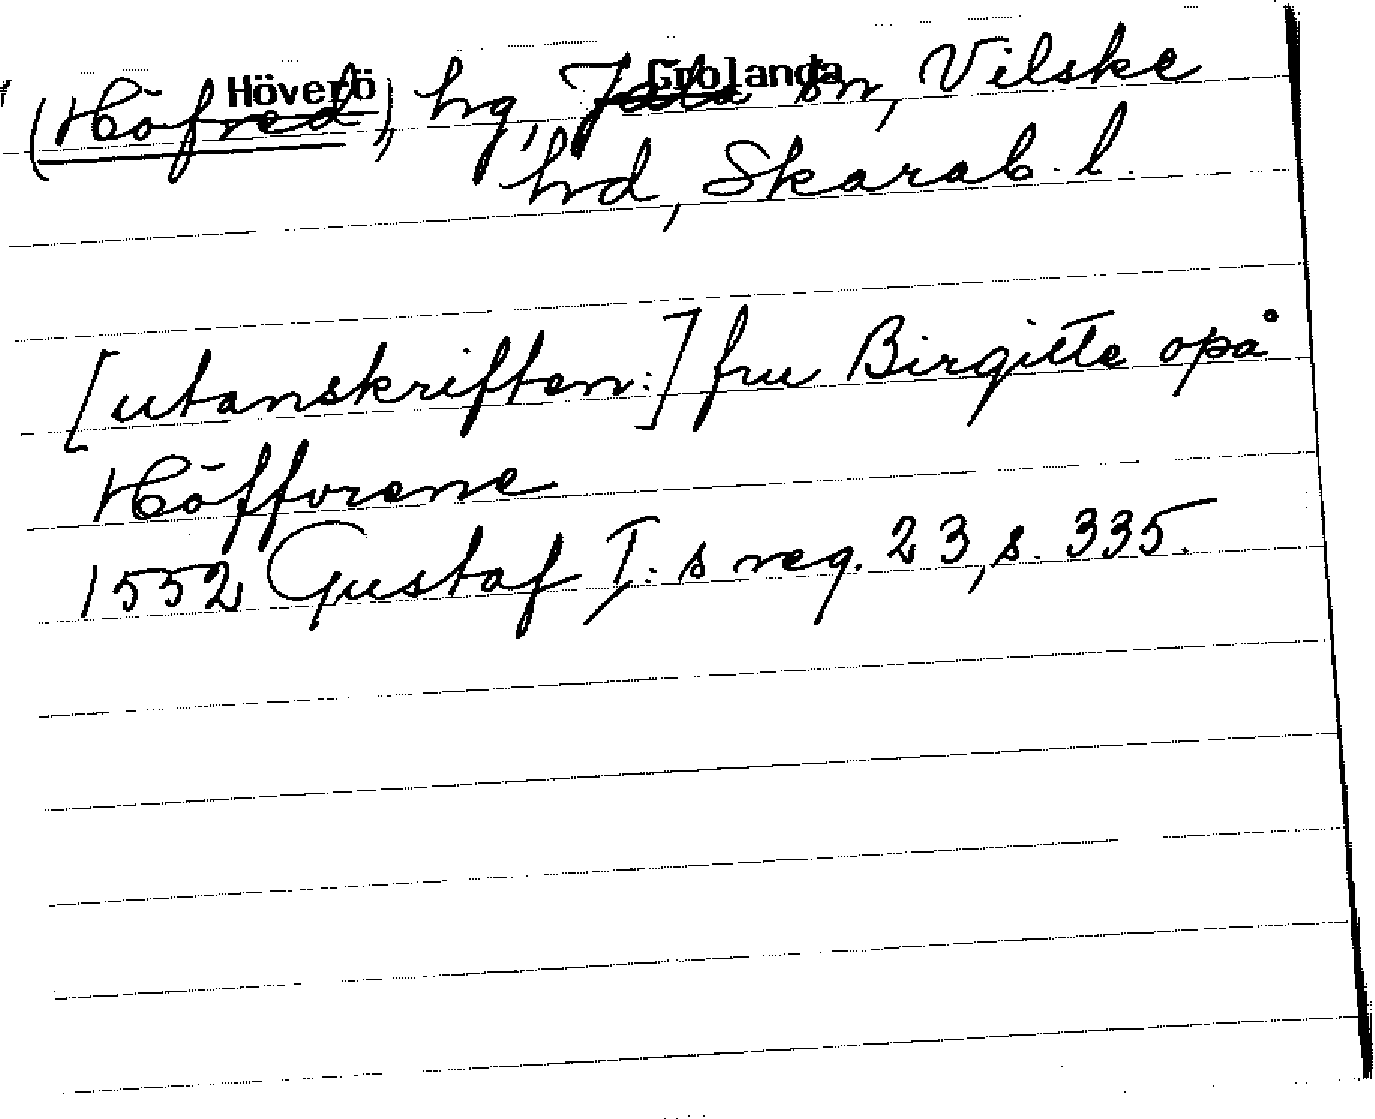 Höverö Grolanda
(Höfred), hg, Jäla sn, Vilske
hd, Skarab. l.
[utanskriften:] fru Birgitte opå
Höffverene
1552 Gustaf I:s reg. 23, s. 335.